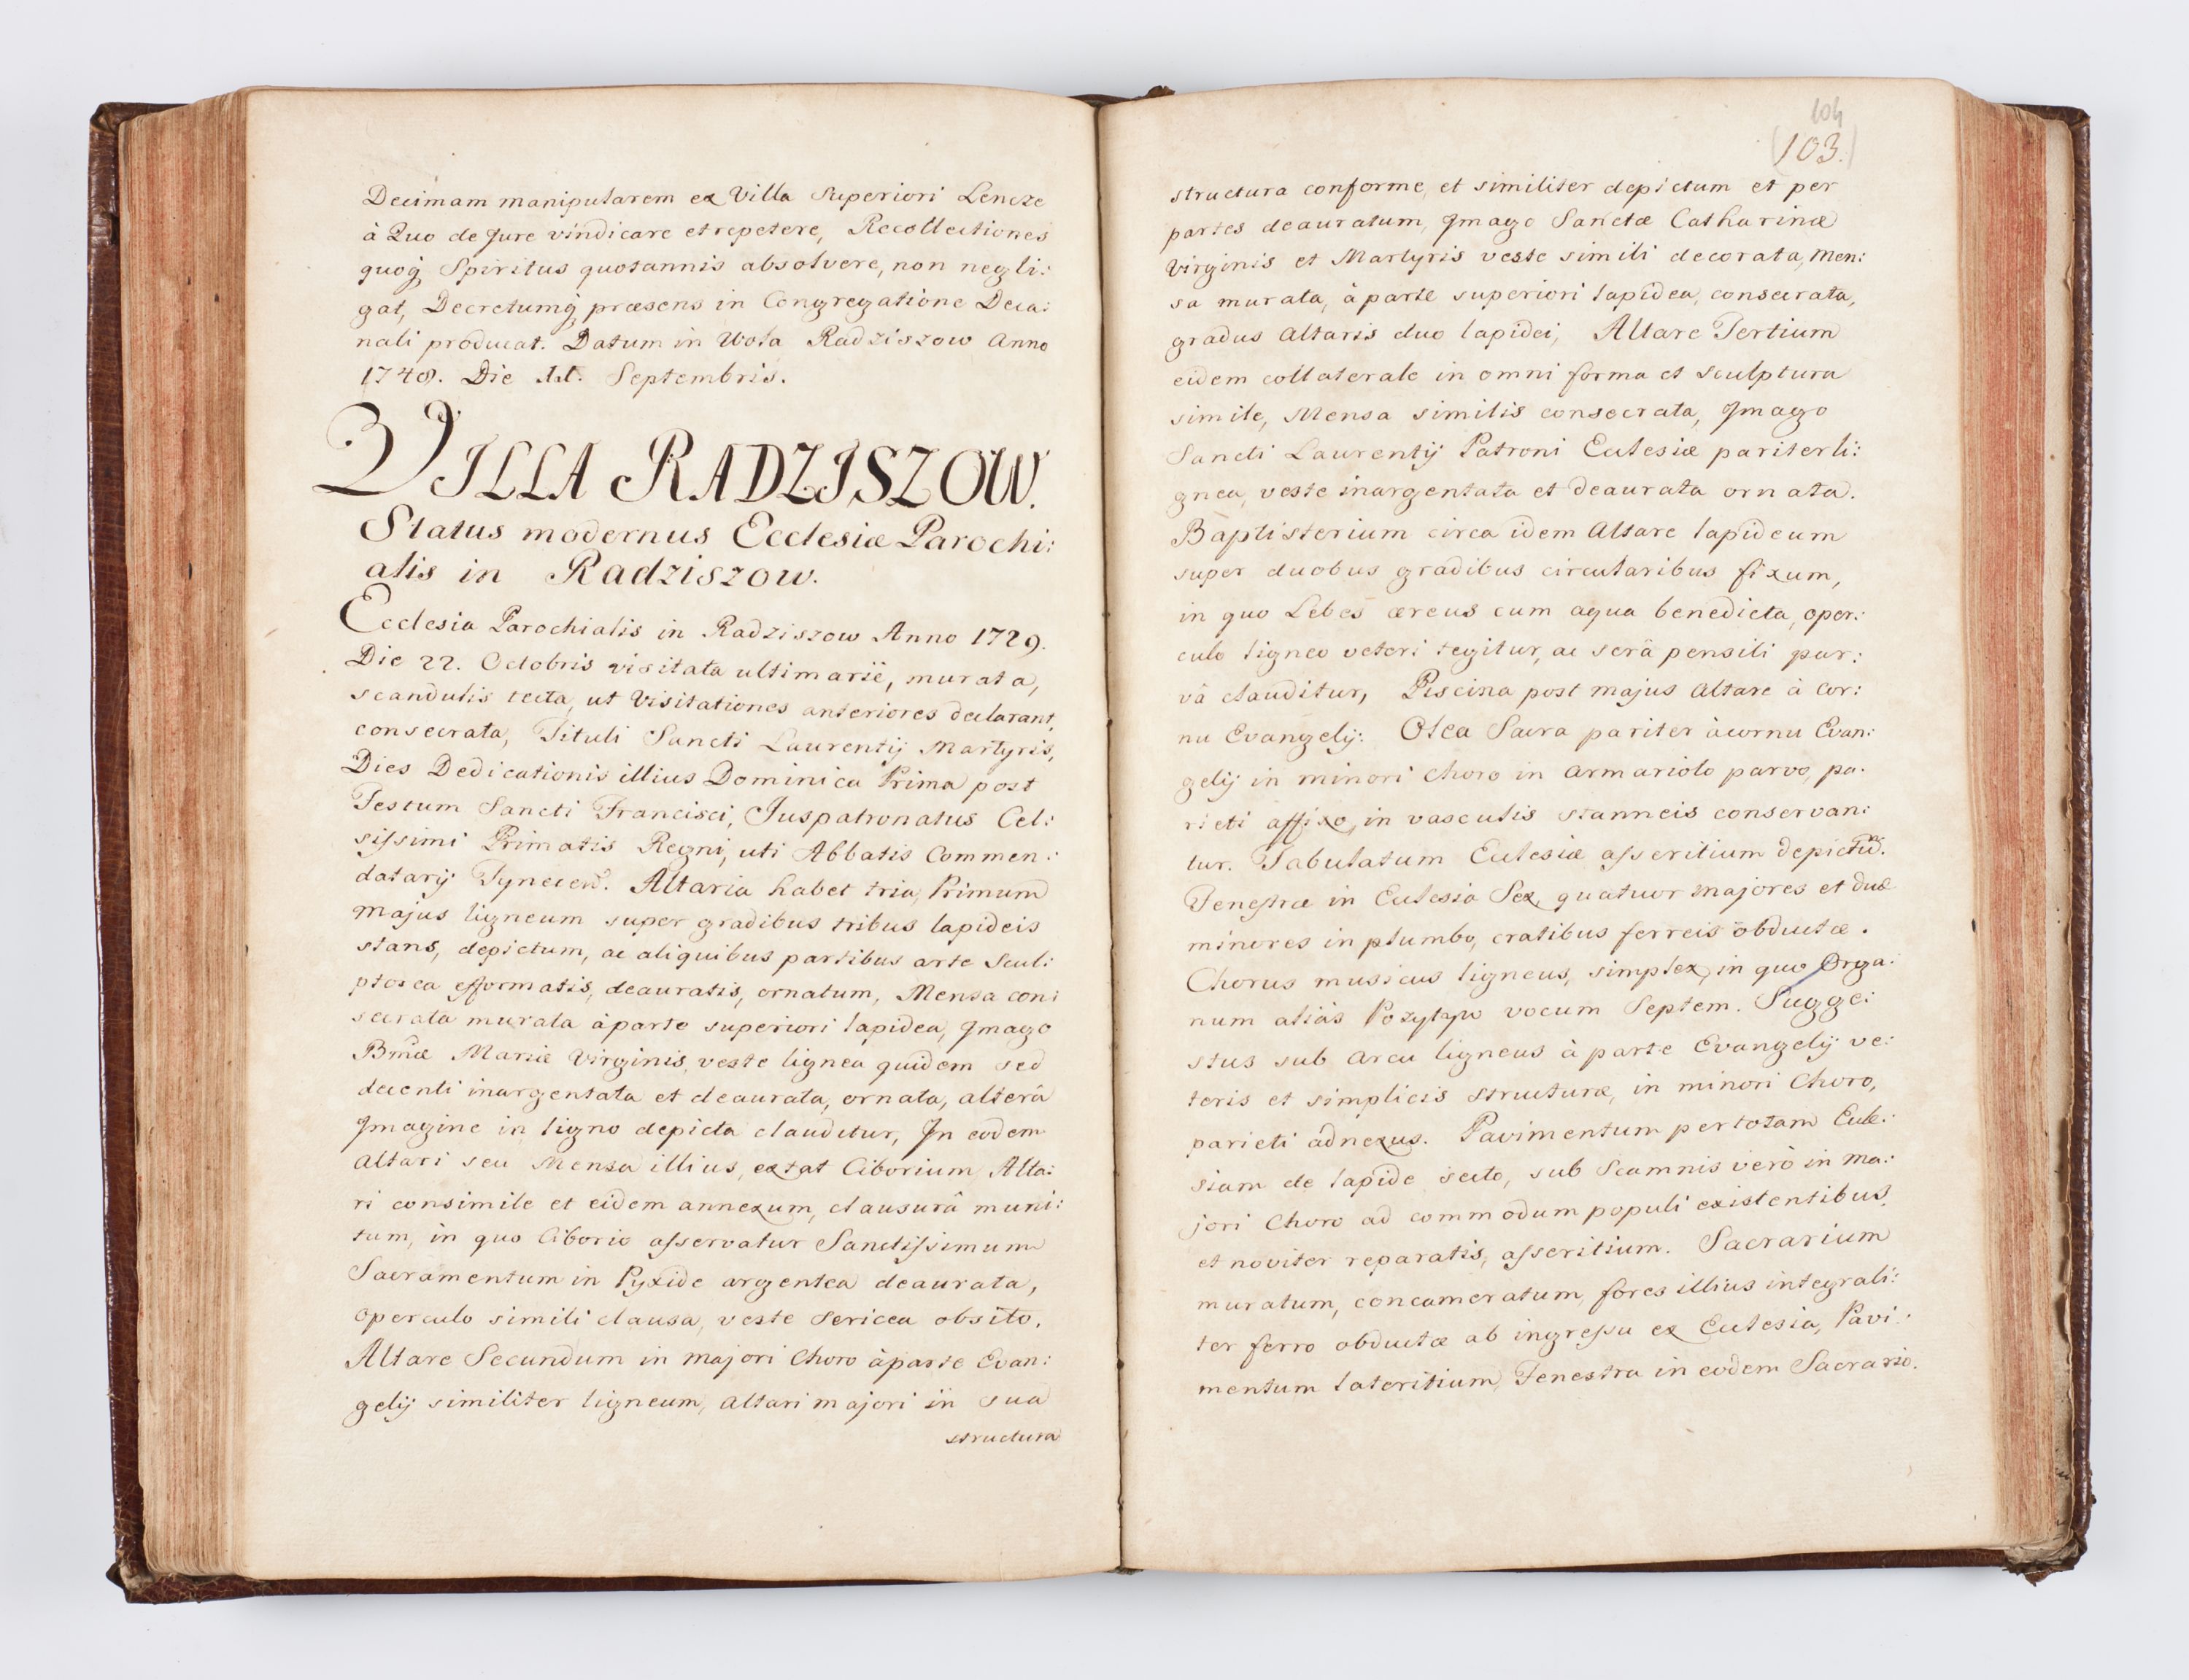 Decimam manipularem ex Villa Superiori Lencze
à Quo de Jure vindicare et repetere, Recollectiones
quoq; Spiritus quotannis absolvere, non negli:
gat, Decretumq; præsens in Congregatione Deca:
nali producat. Datum in Wola Radziszow Anno
1748. Die 11. Septembris.
VILLA RADZISZOW.
Status modernus Ecclesiæ Parochi:
alis in Radziszow.
Ecclesia Parochialis in Radziszow Anno 1729.
Die 22. Octobris visitata ultimarië, murata,
scandulis tecta, ut Visitationes anteriores declarant,
consecrata, Tituli Sancti Laurentij Martyris,
Dies Dedicationis illius Dominica Prima post
Festum Sancti Francisci, Juspatronatus Cel:
sissimi Primatis Regni, uti Abbatis Commen:
datarij Tynecen. Altaria habet tria, Primum
majus ligneum super gradibus tribus lapideis
stans, depictum, ac aliquibus partibus arte Scul:
ptorea efformatis, deauratis, ornatum, Mensa con:
secrata murata à parte superiori lapidea, Jmago
Bmæ Mariæ Virginis, veste lignea quidem sed
decenti inargentata et deaurata, ornata, alterâ
Jmagine in ligno depicta clauditur, Jn eodem
Altari seu Mensa illius, extat Ciborium Alta:
ri consimile et eidem annexum, clausurâ muni:
tum, in quo Ciborio asservatur Sanctissimum
Sacramentum in Pyxide argentea deaurata,
operculo simili clausa, veste sericea obsito.
Altare Secundum in majori Choro à parte Evan:
gelij similiter ligneum, altari majori in sua
structura
104
(103.)
structura conforme, et similiter depictum et per
partes deauratum, Jmago Sanctæ Catharinæ
Virginis et Martyris veste simili decorata, men:
sa murata, à parte superiori lapidea, consecrata,
gradus altaris duo lapidei, Altare Tertium
eidem collaterale in omni forma et sculptura
simile, Mensa similis consecrata, Jmago
Sancti Laurentij Patroni Ecclesiæ pariter li:
gnea, veste inargentata et deaurata ornata.
Baptisterium circa idem Altare lapideum
super duobus gradibus circularibus fixum,
in quo Lebes æreus cum aqua benedicta, oper:
culo ligneo veteri tegitur, ac serâ pensili par:
vâ clauditur, Piscina post majus Altare à Cor:
nu Evangelij. Olea Sacra pariter à cornu Evan:
gelij in minori choro in armariolo parvo, pa:
rieti affixo, in vasculis stanneis conservan:
tur. Tabulatum Ecclesiæ asseritium depictū.
Fenestræ in Ecclesia Sex, quatuor majores et duæ
minores in plumbo, cratibus ferreis obductæ.
Chorus musicus ligneus, simplex, in quo Orga:
num aliàs Pozytyw vocum Septem. Sugge:
stus sub arcu ligneus à parte Evangelij ve:
teris et simplicis structuræ, in minori Choro,
parieti adnexus. Pavimentum per totam Eccle:
siam de lapide secto, sub Scamnis verò in ma:
jori Choro ad commodum populi existentibus,
et noviter reparatis, asseritium. Sacrarium
muratum, concameratum, fores illius integrali:
ter ferro obductæ ab ingressu ex Ecclesia, Pavi:
mentum lateritium, Fenestra in eodem Sacrario.